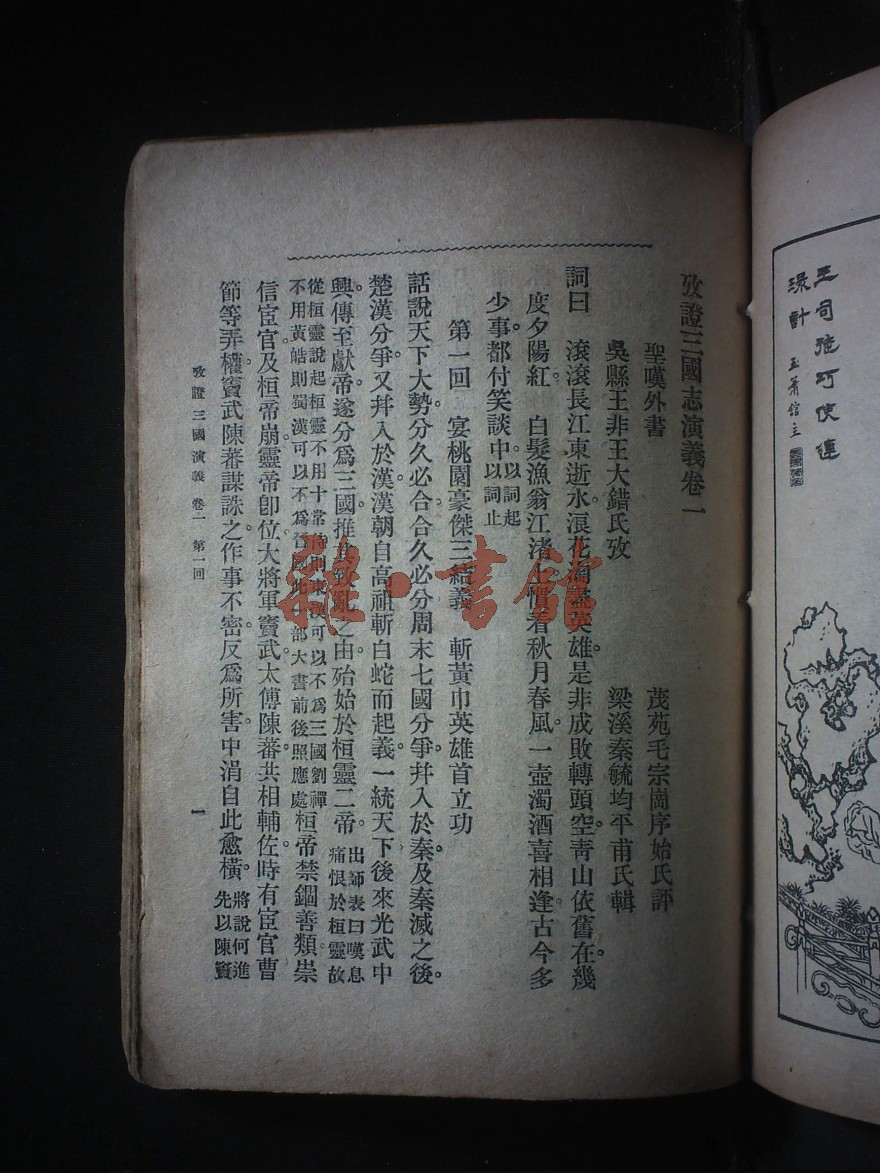 王司徒巧使連
環計
攷證三國志演義卷一
聖嘆外書
茂苑毛宗崗序始氏評
吳縣王非王大錯氏攷
梁溪秦毓均平甫氏輯
詞曰 滾滾長江東逝水浪花淘盡英雄。是非成敗轉頭空。青山依舊在幾
度夕陽紅。 白髮漁翁江渚上慣看秋月春風。一壺濁酒喜相逢。古今多
少事。都付笑談中。以詞起以詞止
第一回 宴桃園豪傑三結義 斬黃巾英雄首立功
話說天下大勢。分久必合。合久必分。周末七國分爭。幷入於秦。及秦滅之後。
楚漢分爭。又幷入於漢。漢朝自高祖斬白蛇而起義。一統天下。後來光武中
興。傳至獻帝。遂分爲三國。推其致亂之由。殆始於桓靈二帝。出師表曰嘆息痛恨於桓靈故
從桓靈說起桓靈不用十常侍則東漢可以不爲三國劉禪不用黃皓則蜀漢可以不爲晉國此一部大書前後照應處桓帝禁錮善類崇
信宦官。及桓帝崩。靈帝卽位。大將軍竇武。太傅陳蕃。共相輔佐。時有宦官曹
節等弄權。竇武陳蕃謀誅之。作事不密。反爲所害。中涓自此愈橫。將說何進先以陳竇
攷證三國演義 卷一 第一回
一
雜·書館